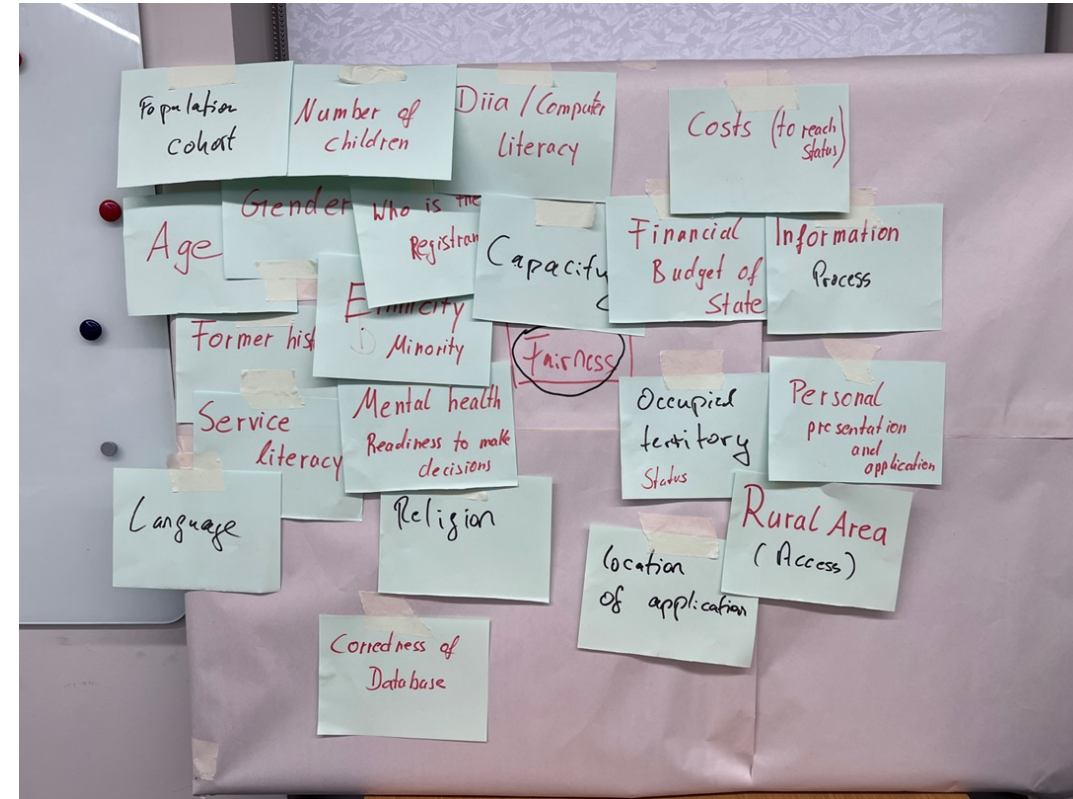 Population
cohort
Number of
children
Diia / Computer
literacy
Costs (to reach
Status)
Age
Gender
Who is the
Registran
Capacity
Financial
Budget of
State
Information
Process
Former hist
Ethnicity
Minority
Fairness
Service
literacy
Mental health
Readiness to make
decisions
Occupied
territory
Status
Personal
presentation
and
application
Language
Religion
Rural Area
(Access)
location
of application
Correctness of
Database